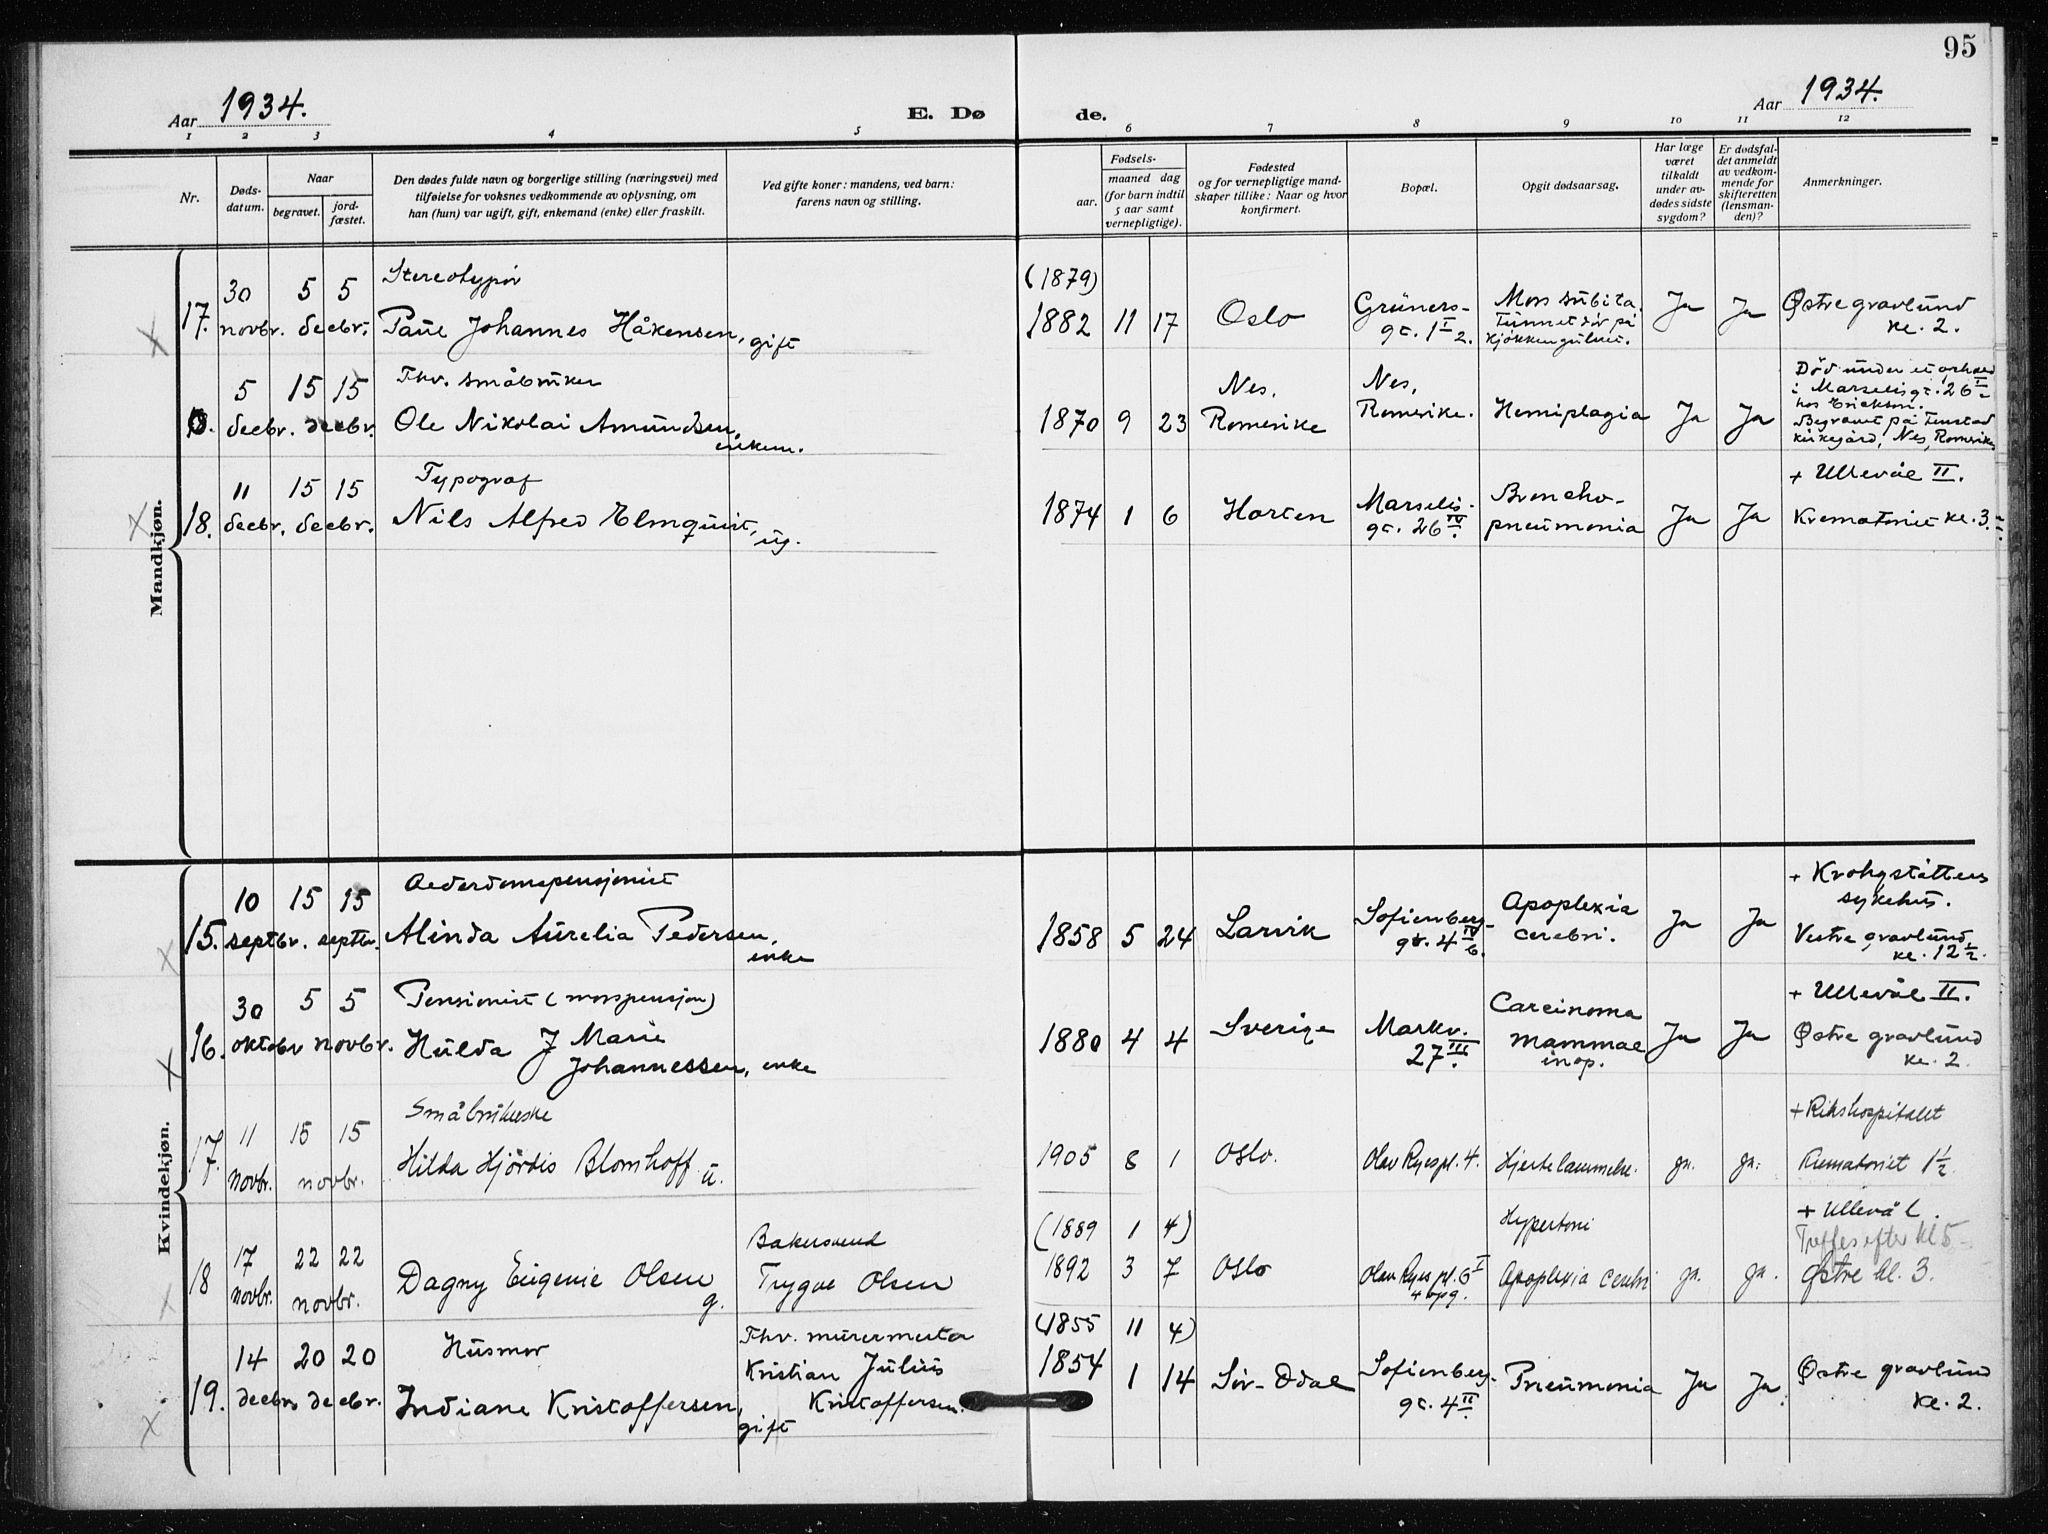 95
Aar 1934.
E. Dø de.
Aar 1934.
1 2 3 4 5 6 7 8 9 10 11 12
Nr.
Døds-
datum.
Naar
begravet.
jord-
fæstet.
Den dødes fulde navn og borgerlige stilling (næringsvei) med
tilføielse for voksnes vedkommende av oplysning, om
han (hun) var ugift, gift, enkemand (enke) eller fraskilt.
Ved gifte koner: mandens, ved barn:
farens navn og stilling.
Fødsels-
aar.
maaned dag
(for barn indtil
5 aar samt
vernepligtige).
Fødested
og for vernepligtige mand-
skaper tillike: Naar og hvor
konfirmert.
Bopæl.
Opgit dødsaarsag.
Har læge
været
tilkaldt
under av-
dødes sidste
sygdom?
Er dødsfal-
det anmeldt
av vedkom-
mende for
skifteretten
(lensman-
den)?
Anmerkninger.
Mandkjøn.
17. 30 novbr. 5 5 decbr.
Stereotypør
Paul Johannes Håkensen, gift
(1879)
1882 11 17
Oslo
Grüners-
gt. 1 I 2.
Mors subita.
Funnet død på
kjøkkengulvet.
Ja Ja
Østre gravlund
kl. 2.
5 decbr. 15 decbr. 15 decbr.
Fhv. småbruker
Ole Nikolai Amundsen, enkem.
1870 9 23
Nes,
Romerike
Nes,
Romerike.
Hemiplagia
Ja Ja
Død under et ophold
i Marselisgt. 26 I
hos Erickson.
Begravet på Fenstad
kirkegård, Nes, Romerike
18. 11 decbr. 15 15 decbr.
Typograf
Nils Alfred Elmquist, ug.
1874 1 6
Horten
Marselis-
gt. 26 IV.
Broncho-
pneumonia
Ja Ja
+ Ullevål II.
Krematoriet kl. 3.
Kvindekjøn.
15. 10 septbr. 15 15 septbr.
Alderdomspensjonist
Alinda Aurelia Pedersen, enke
1858 5 24
Larvik
Sofienberg-
gt. 4 IV 6.
Apoplexia
cerebri.
Ja Ja
+ Krohgstøttens
sykehus.
Vestre gravlund,
kl. 12 1/2.
16. 30 oktobr 5 5 novbr.
Pensionist (morspensjon)
Hulda J Marie
Johannessen, enke
1880 4 4
Sverige
Markv.
27 III.
Carcinoma
mammae
inop.
Ja Ja
+ Ullevål II.
Østre gravlund
kl. 2.
17. 11 novbr. 15 15 novbr.
Småbrukerske
Hilda Hjördis Blomhoff u.
1905 8 1
Oslo.
Olav Ryes pl. 4.
Hjertelammelse.
ja. ja.
+ Rikshospitalet
Krematoriet 1 1/2.
18 17 novbr. 22 22 novbr.
Dagny Eugenie Olsen g.
Bakersvend
Trygve Olsen
(1889 1 4)
1892 3 7
Oslo
Olav Ryes pl. 6 I
4 opg.
Hypertoni
Apoplexia cerebri
ja. ja.
+ Ullevål.
Treffes efter kl 5
Østre kl. 3.
19. 14 decbr. 20 20 decbr.
Husmor
Indiane Kristoffersen, gift
Fhv. murermester
Kristian Julius
Kristoffersen.
(1855 11 4)
1854 1 14
Sør-Odal
Sofienberg-
gt. 4 II.
Pneumonia
Ja Ja.
Østre gravlund
kl. 2.